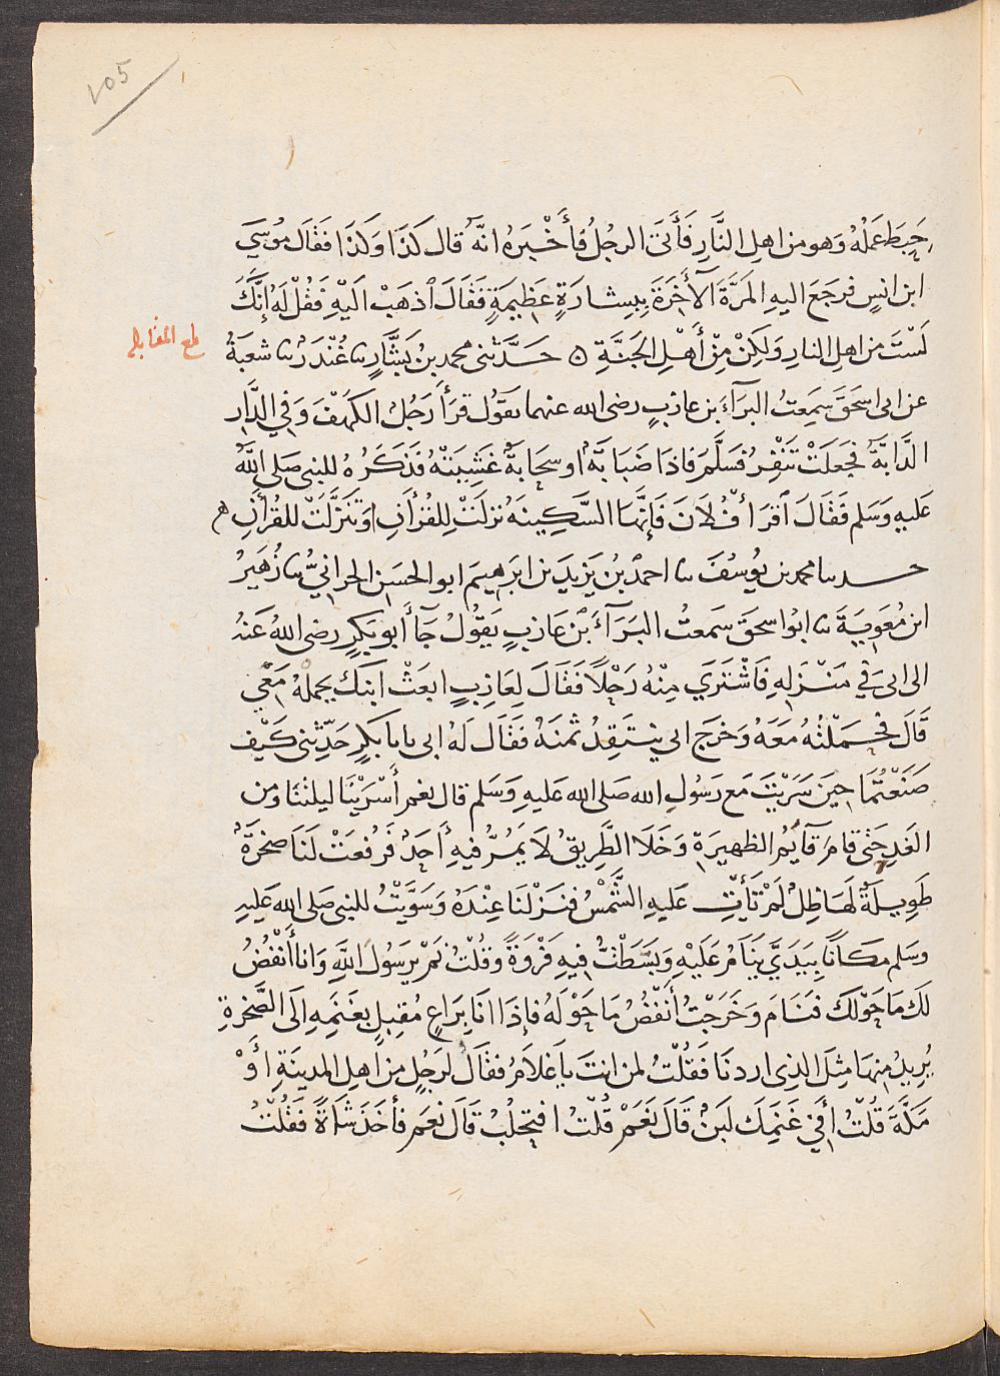 105
حَبِطَ عَمَلُهُ وَهو من اهلِ النَّارِ فَأَتَى الرجلُ فأَخْبَرهُ انهُ قال كَذَا وَكَذَا فقَال موسى
ابن انسٍ فرجَعَ اليهِ المَرَّةَ الآخِرَةَ بِبِشارَةٍ عَظِيمَةٍ فَقَالَ اذهَبْ الَيْهِ فَقُلْ لَهُ إِنَّكَ
لَسْتَ من اهلِ النارِ وَلَكِنْ مِنْ أَهْلِ الجَنَّةِ ٥ حَدَّثنى محمد بنُ بَشَّارٍ نا غُنْدَرٌ نا شعبَةُ
بلغ المقابله
عن ابى اسحَقَ سَمِعتُ البرَآءَ بن عازبٍ رضى الله عنهما يقولُ قرَأَ رَجُلٌ الكهْفَ وَفِي الدَّارِ
الدَّابَّةُ فجَعَلَتْ تَنْفِرُ فسَلَّمَ فاذَا ضَبَابَةٌ او سحَابةٌ غَشِيَتْهُ فَذَكَرُهُ للنبى صَلى اللَّهُ
عَليهِ وَسَلم فَقَالَ اقرَأْ فُلَانَ فَإِنَّهَا السَّكِينَهُ نزلَتْ لِلقُرْأَنِ اوتَنَزَّلَتْ للقُرأَنِ
حدثنا محمد بن يوسُفَ نا احمدُ بنُ يَزِيدَ بن ابرَهِيمَ ابو الحسَنِ الحرانيُّ نا زُهَيرُ
ابن مُعَوِيَةَ نا ابوا سحقَ سَمعتُ البَرَآءَ بْنَ عَازِبٍ يَقُولُ جَآءَ أَبو بَكرٍ رضى اللهُ عَنهُ
الى ابى فِي مَنْزِلِهِ فَاشْتَرَي مِنْهُ رَحْلًا فَقَالَ لِعَازِبٍ ابعَثْ ابنَكَ يحملهُ مَعْي
قَالَ فحَمَلْتُهُ مَعَهُ وَخَرَجَ ابى يَنتَقِدُ ثمنَهُ فَقَال لَهُ ابى يابا بَكرٍ حَدِّثنى كَيف
صَنَعْتُمَا حِينَ سَرَيْتَ مَع رَسُولِ الله صَلى الله عَليهِ وَسَلم قال نعم أَسْرَيْنَا ليلتَنَا ومن
الغَدِ حَتى قامَ قآيِمُ الظهيرَةِ وَخَلَا الطَّرِيقُ لَا يَمُرُّ فيهِ أَحَدٌ فَرُفعَتْ لَنَا صخرَةٌ
طَوِيلَةٌ لَهَا ظِلٌّ لَمْ تَأْتِ عَليهِ الشَّمْسُ فنَزَلْنَا عِنْدَهُ وَسَوَّيْتُ للنبى صَلى الله عَليهِ
وسَلم مكَانًا بِيَدَيَّ يَنَامُ عَلَيْهِ وَبَسَطْتُ فيهِ فَرْوَةً وقُلْتُ نَمْ يرَسُولَ اللهِ وَانا أَنْفُضُ
لَكَ مَا حَوْلَكَ فنَامَ وَخَرَجْتُ أَنْفُضُ مَا حَوْلَهُ فإذَا انَا بِرَاعٍ مُقبِلٍ بِغَنَمِهِ إلَى الصَّخرةِ
يُرِيدُ منهَا مِثلَ الذِى اردنَا فَقُلْتُ لمن انتَ ياغلَامُ فقَالَ لرَجُلٍ من اَهلِ المدينَةِ أَوْ
مَكَّةَ قُلْتُ أَفِي غَنَمِكَ لَبَنٌ قَالَ نَعَمْ قُلْتُ افتحلُبُ قَالَ نعَم فأخَذَ شَاةً فَقُلْتُ